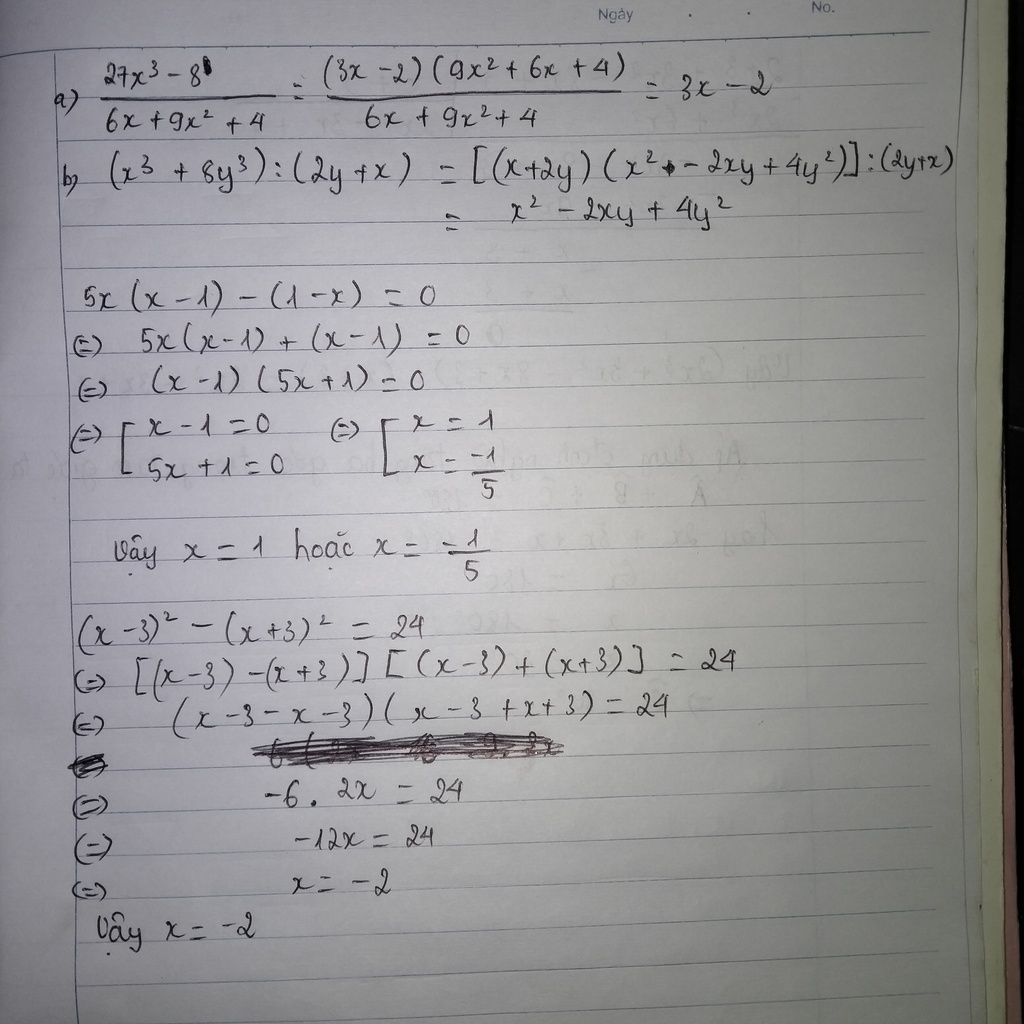 Ngày . . No.
a) \frac{27x³ - 8}{6x + 9x² + 4} = \frac{(3x - 2)(9x² + 6x + 4)}{6x + 9x² + 4} = 3x - 2
b) (x³ + 8y³) : (2y + x) = [(x+2y)(x² - 2xy + 4y²)] : (2y+x)
= x² - 2xy + 4y²
5x(x - 1) - (1 - x) = 0
⇔ 5x(x-1) + (x-1) = 0
⇔ (x-1)(5x+1) = 0
⇔ [ x - 1 = 0 ⇔ [ x = 1
5x + 1 = 0 x = \frac{-1}{5}
Vậy x = 1 hoặc x = \frac{-1}{5}
(x-3)² - (x+3)² = 24
⇔ [(x-3) - (x+3)] [(x-3) + (x+3)] = 24
⇔ (x - 3 - x - 3)(x - 3 + x + 3) = 24
⇔ -6 . 2x = 24
⇔ -12x = 24
⇔ x = -2
Vậy x = -2